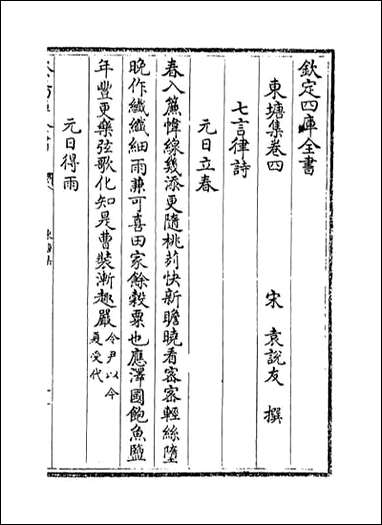 欽定四庫全書
東塘集卷四
宋 袁說友 撰
七言律詩
元日立春
春入簾幃線幾添更隨桃茢快新瞻曉看密密輕絲墮
晩作纖纖細雨兼可喜田家餘穀粟也應澤國飽魚鹽
年豐更樂弦歌化知是曹裝漸趣嚴令尹以今夏受代
元日得雨